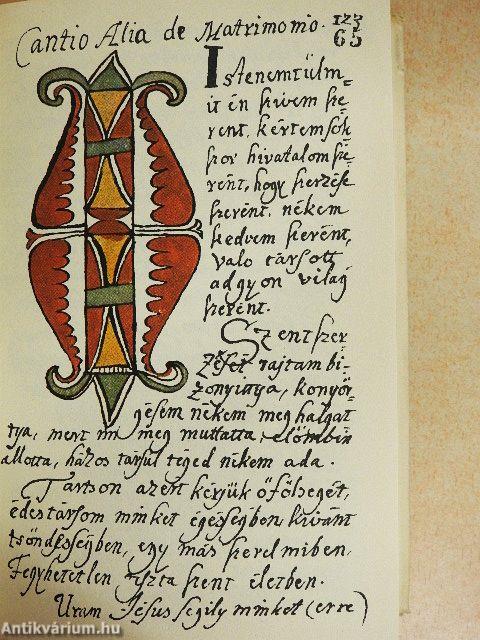 Cantio Alia de Matrimonio.
123
65
Istenemtül m-
it én szivem sze-
rent, kértem sok
szor hivatalom sze-
rént, hogy szerzése
szerént, nékem
kedvem szerént,
valo társott
adgyon világ
szerént.
Szent szer-
zését rajtam bi-
zonyittya, könyör-
gésem nékem meg halgat
tya, mert mi meg muttatta, elömbin
allotta, házos társul téged nékem ada.
Tartson azert kérjük öfölségét,
édes társom minket égésségben, kivánt
tsöndességben, egy más szerelmiben,
Fegyhetetlen tiszta szent életben.
Uram Jésus segily minket (erre)
Antikvárium.hu